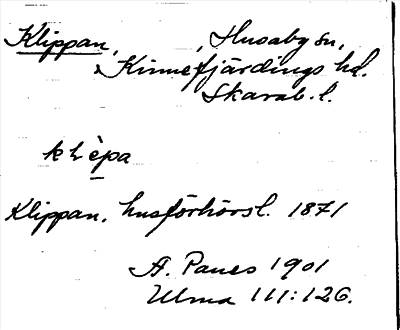 Klippan, , Husaby sn,
Kinnefjärdings hd.
Skarab. l.
klèpa
Klippan, husförhörsl. 1871
A. Panes 1901
Ulma 111:126.